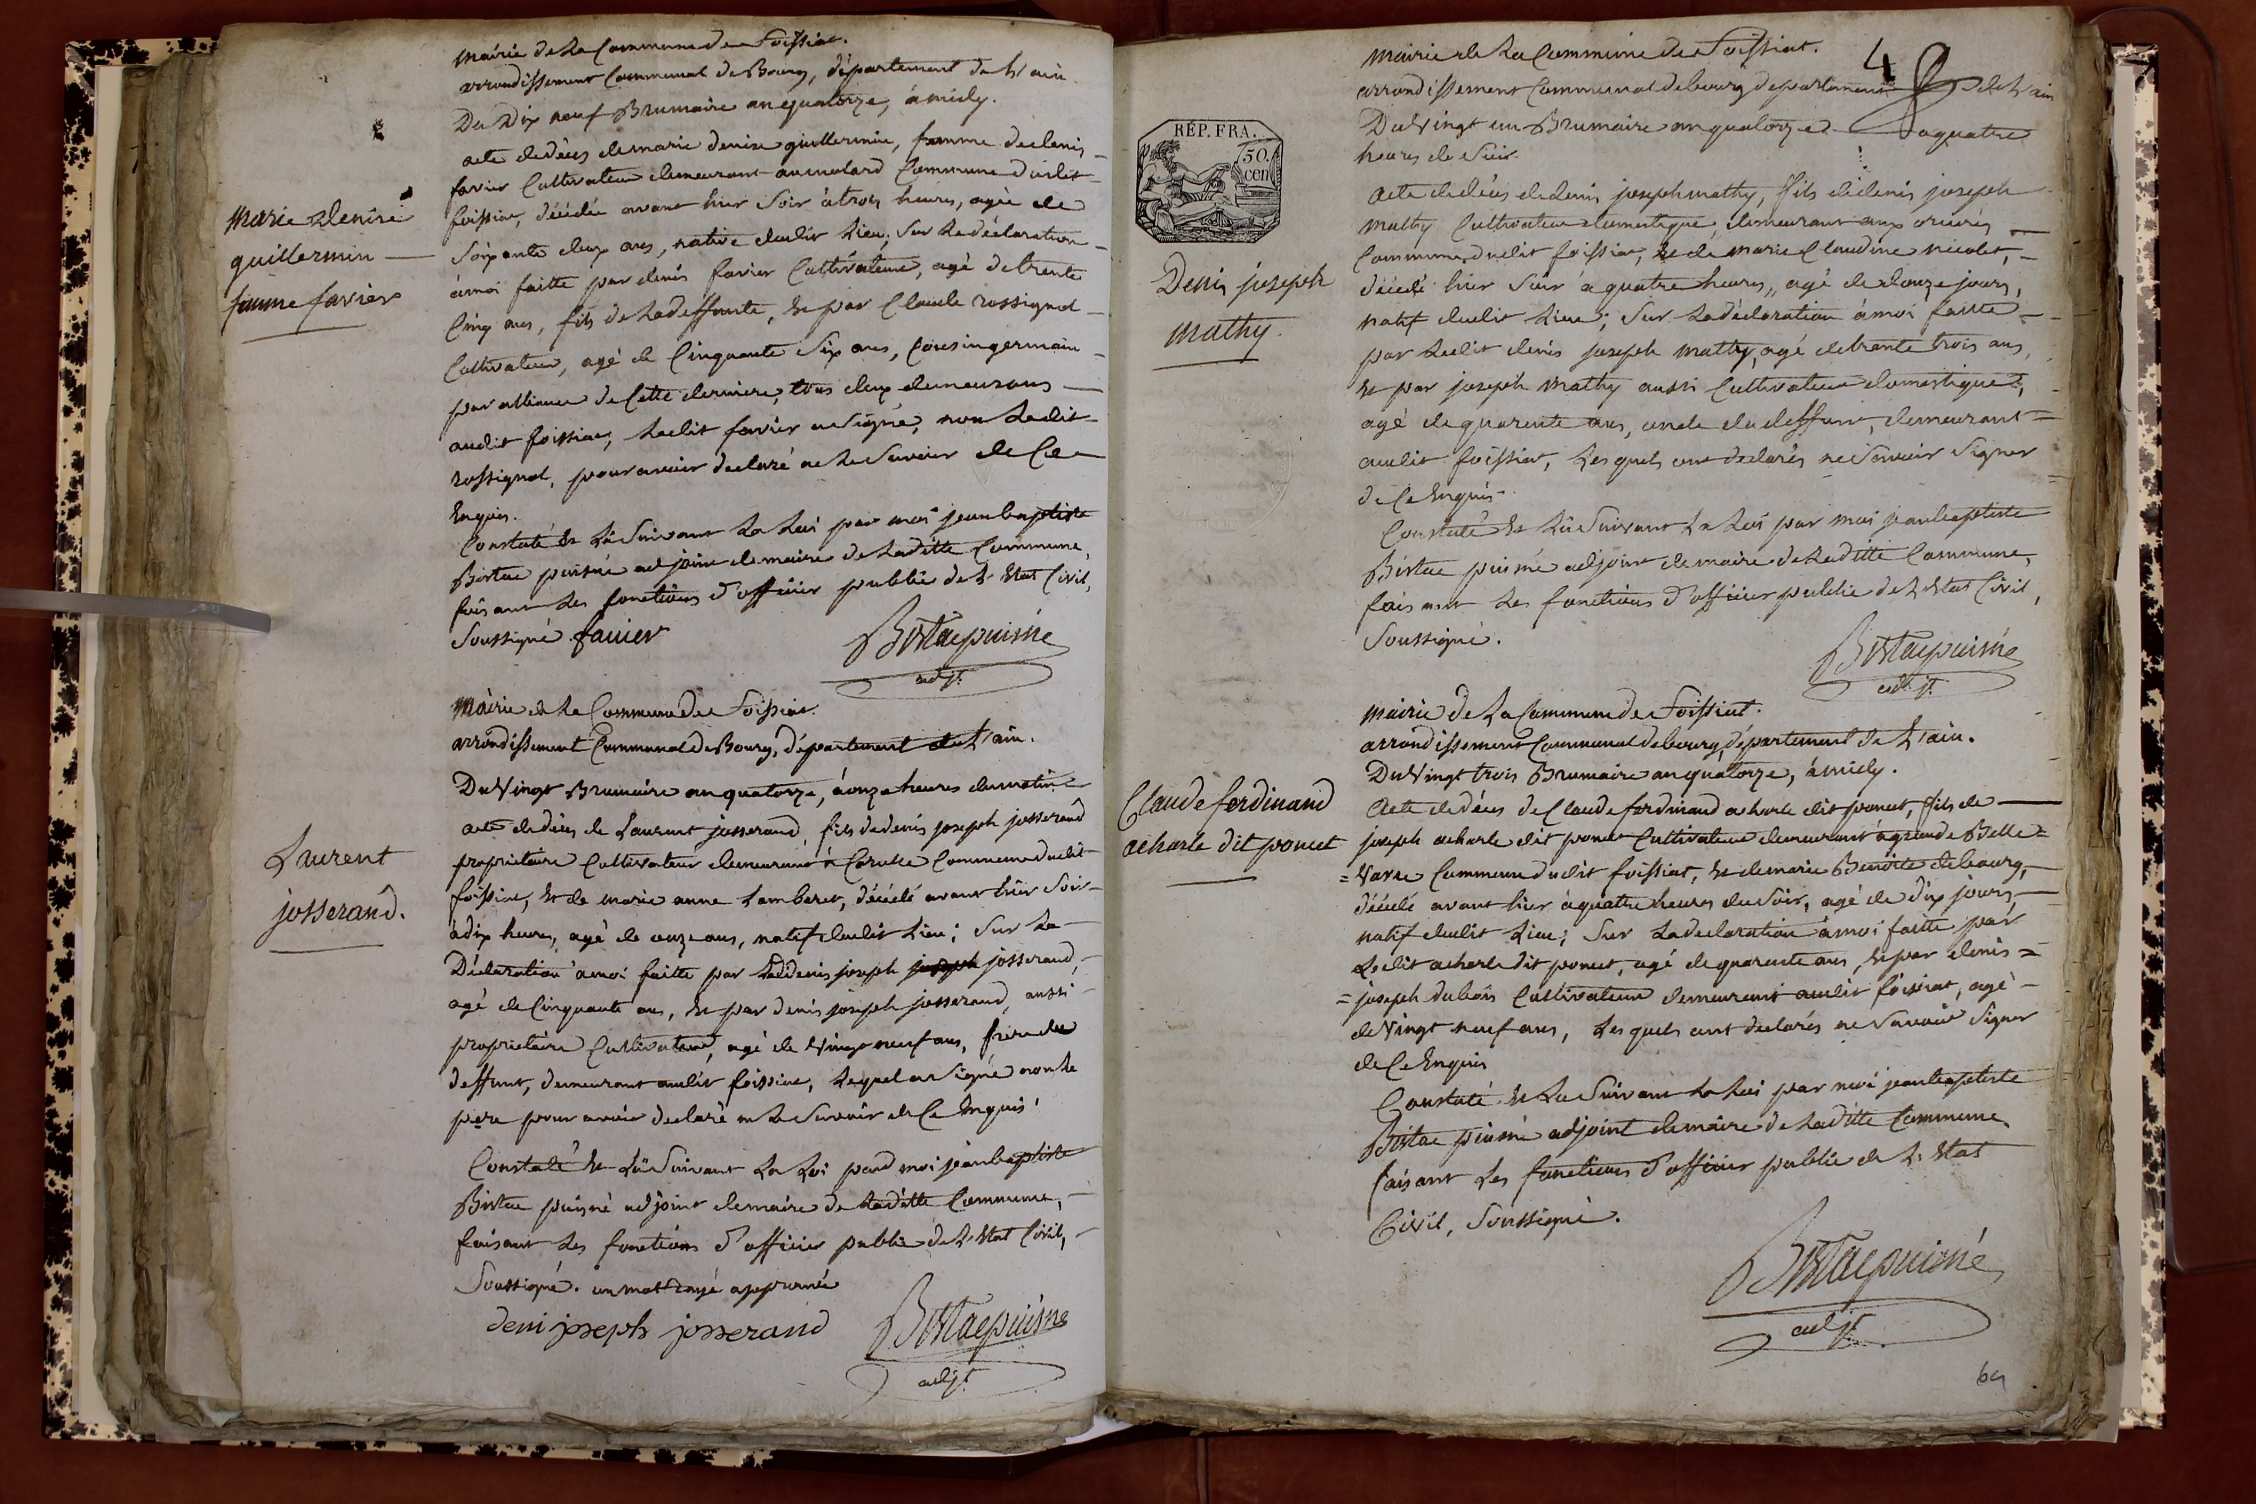 mairie de La Commune de Foissiat.
arrondissement Communal de Bourg, département de L'ain.
Du Dix neuf Brumaire an quatorze, à midy.
Marie denise
guillermin
femme favier
acte de déces de marie denise guillermin, femme de denis
favier Cultivateur demeurant au molard Commune dudit
foissiat, décédée avant hier Soir à trois heures, agée de
Soixante deux ans, native dudit Lieu; Sur La déclaration
à moi faitte par denis favier Cultivateur, agé de trente
Cinq ans, fils de La deffunte, et par Claude rossignol
Cultivateur, agé de Cinquante Six ans, Cousin germain
par alliance de Cette derniere, tous deux demeurans
audit foissiat, Ledit favier a Signé, non Ledit
rossignol, pour avoir declaré ne Le Savoir de Ce
Enquis.
Constaté et Lû Suivant La Loi par moi jean baptiste
Bistac puisné adjoint de maire de Laditte Commune,
faisant Les fonctions d'officier public de L'Etat Civil,
Soussigné. favier
Bistac puisné
adjt.
Mairie de La Commune de Foissiat.
arrondissement Communal de Bourg, département de L'ain.
Du Vingt Brumaire an quatorze, à onze heures du matin
Laurent
josserand.
acte de déces de Laurent josserand, fils de denis joseph josserand
proprietaire Cultivateur demeurant à Commune dudit
foissiat, et de marie anne Lamberet, décédé avant hier Soir
à dix heures, agé de onze ans, natif dudit Lieu; Sur La
Déclaration à moi faitte par Ledit denis joseph joseph josserand,
agé de Cinquante ans, et par denis joseph josserand, aussi
proprietaire Cultivateur, agé de Vingt neuf ans, frere du
deffunt, demeurant audit foissiat, Lequel a Signé non Le
pere pour avoir declaré ne Le Savoir de Ce Enquis
Constaté et Lû Suivant La Loi par moi jean baptiste
Bistac puisné adjoint de maire de Laditte Commune,
faisant Les fonctions d'officier public de L'Etat Civil,
Soussigné. un mot rayé approuvé
deni joseph josserand
Bistac puisné
adjt.
4
mairie de La Commune de Foissiat.
arrondissement Communal de bourg département de L'ain
Du Vingt un Brumaire an quatorze à quatre
heures de Soir.
RÉP. FRA.
50
cen
Denis joseph
mathy.
acte de déces de denis joseph mathy, fils de denis joseph
mathy Cultivateur domestique, demeurant aux
Commune dudit foissiat, et de marie Claudine nicolet,
décédé hier Soir à quatre heures, agé de douze jours,
natif dudit Lieu; Sur La déclaration à moi faitte
par Ledit denis joseph mathy, agé de trente trois ans,
et par joseph mathy aussi Cultivateur domestique,
agé de quarente ans, oncle du deffunt, demeurant
audit foissiat, Lesquels ont declarés ne Savoir Signer
de Ce Enquis.
Constaté et Lû Suivant La Loi par moi jean baptiste
Bistac puisné adjoint de maire de Laditte Commune,
faisant Les fonctions d'officier public de L'Etat Civil,
Soussigné.
Bistac puisné
adjt.
mairie de La Commune de Foissiat.
arrondissement Communal de bourg, département de L'ain.
Du Vingt trois Brumaire an quatorze, à midy.
Claude ferdinand
acharle dit poncet
Acte de déces de Claude ferdinand acharle dit poncet, fils de
joseph acharle dit poncet Cultivateur demeurant à grande Belle=
=Vavre Commune dudit foissiat, et de marie Benoite debourg,
décédé avant hier à quatre heures du Soir, agé de dix jours,
natif dudit Lieu; Sur La declaration à moi faitte par
Ledit acharle dit poncet, agé de quarente ans, et par denis=
=joseph dubois Cultivateur demeurant audit foissiat, agé
de Vingt neuf ans, Lesquels ont declarés ne Savoir Signer
de Ce Enquis
Constaté et Lu Suivant La Loi par moi jean baptiste
Bistac puisné adjoint de maire de Laditte Commune
faisant Les fonctions d'officier public de L'Etat
Civil, Soussigné.
Bistac puisné
adjt.